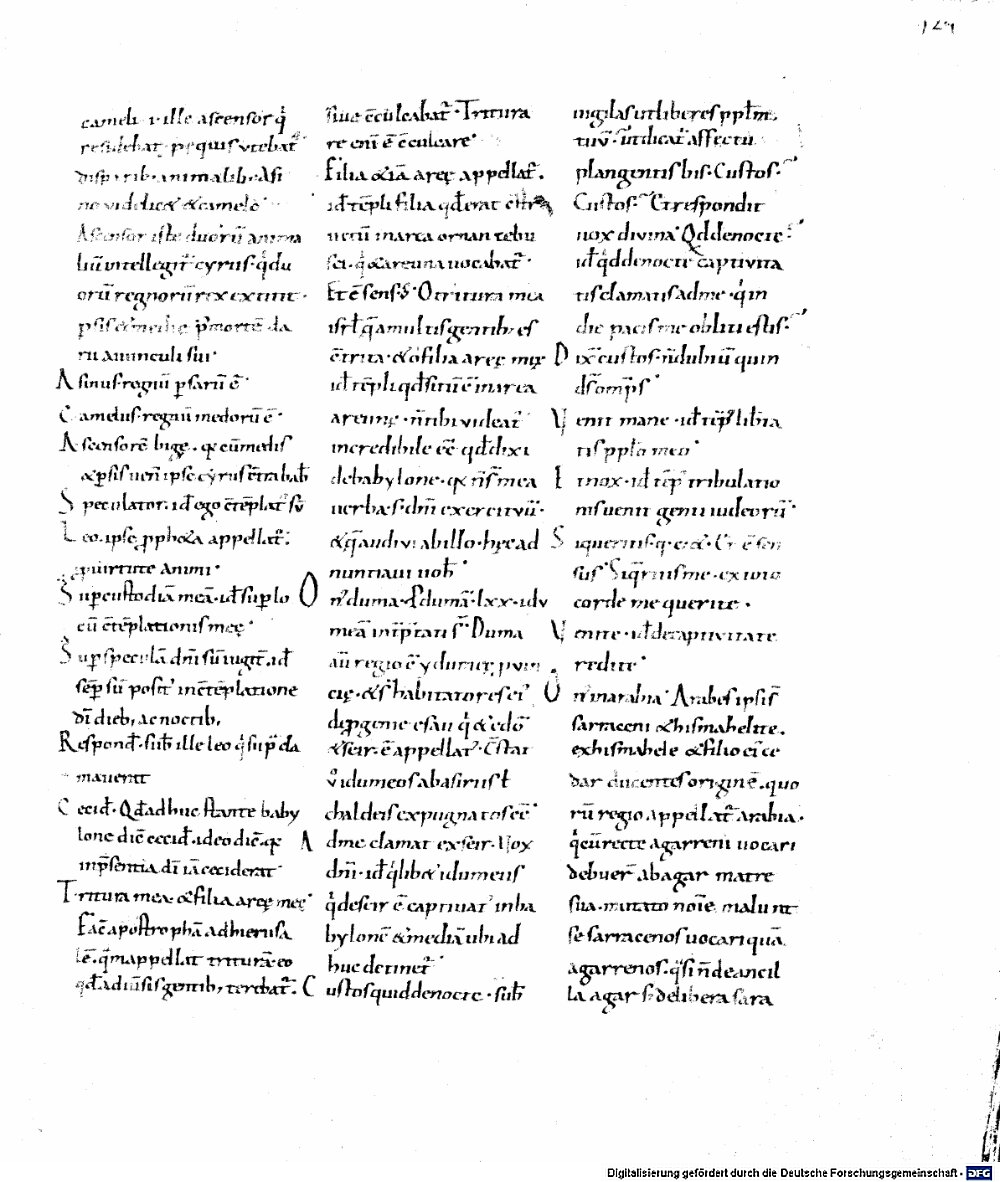 cameli · ille ascensor q̊
residebat · ꝑ quis utebat᷑
disparib; animalib; Asi
no videlic& & camelo ·
Ascensor iste duorū anima
liū intellegit᷑ cyrus · q̊ du
orū regnorū rex extitit ·
ꝑsis & medie p̄ morte da
rii auunculi sui ·
Asinus · regnū ꝑsarū ē ·
Camelus · regnū medorū ē ·
Ascensorē bigę · qa cū medis
& ꝑsis ueni& ipse cyrus cōtra bab̄
Speculator · id ego cōtēplat᷑ sū
Leo · ipse ꝓph&a appellat᷑ ·
a uirtute animi ·
Suꝑ custodiā meā · id suꝑ lo
cū cōtēplationis meę ·
Suꝑ speculā dn̄i sū iugit᷑ · id
sēp sū posit᷒ in cōtēplatione
dī dieb; ac noctib;
Respond · sub ille leo q̊ sup̄ cla
mauerat
Cecid · Qđ adhuc stante baby
lone diē cecid · ideo diē · qa
in p̄sentia dī iā ceciderat ·
Tritura mea · & filia areę meę ·
Fac̄ apostrophā ad hierusa
lē · q̄m appellat triturā · eo
qđ a diūsis gentib; terebat᷑ ·
siue cōculcabat᷑ · Tritura
re enī ē cōculcare ·
Filia & iā areę appellat᷑ ·
id tēpli filia qđ erat cōtra
uetū in area ornan iebu
sei · q̊ & areuna uocabat᷑ ·
Et ē sens᷒ · O tritura mea
isrł q̄ a multis gentib; es
cōtrita · & o filia areę meę
id tēpli qđ sitū ē in area
areunę · n̄ tibi videat᷑
incredibile eē qđ dixi
de babylone · qa n̄ s̄ mea
uerba · s; dn̄i exercituū ·
& q̄ audivi ab illo · hęc ad
nuntiaui uob̄ ·
On᷒ duma · P duma · lxx · idu
meā int̄p̄tati s̄ Duma
aū regio ē ydumeę ꝓuin
cię · & s̄ habitatores ei᷒
de ꝓgenie esau q̊ & edō
& seir · ē appellat᷒ · Cōstat
v̊ idumeos ab asiriis ł
chaldeis expugnatos eē ·
Ad me clamat ex seir · Uox
dn̄i · id q̊lib& idumeus
q̊ de seir ē captiuat᷒ in ba
bylonē & mediā ubi ad
huc detinet᷑ ·
Custos quid de nocte · sub
uigilas ut liberes ppłm
tuū · ut indicat᷑ affectū
plangentis bis · Custos ·
Custos · Et respondit
uox divina · Qđ de nocte ·
id q̊d de nocte captivita
tis clamatis ad me · q̊ in
die pacis me obliti estis ·
Dix̄ custos · n̄ dubiū quin
ds̄ omp̄s ·
Venit mane · id tēp᷒ liba
tis pplo meo ·
Et nox · id tēp᷒ tribulatio
nis uenit genti iudeorū ·
Si queritis · q · e& · Et ē sen
sus · Si q̄ritis me · ex toto
corde me querite ·
Venite · id de captivitate
redite ·
On᷒ in arabia · Arabes ipsi s̄
sarraceni & hismahelite ·
ex hismahele & filio ei᷒ ce
dar ducentes originē · quo
rū regio appellat᷑ arabia ·
q̊ cū recte agarreni uocari
debuer̄ ab agar matre
sua · mutato noīe malunt
se sarracenos uocari quā
agarrenos · q̊si n̄ de ancil
la agar s; de libera sara
Digitalisierung gefördert durch die Deutsche Forschungsgemeinschaft - DFG